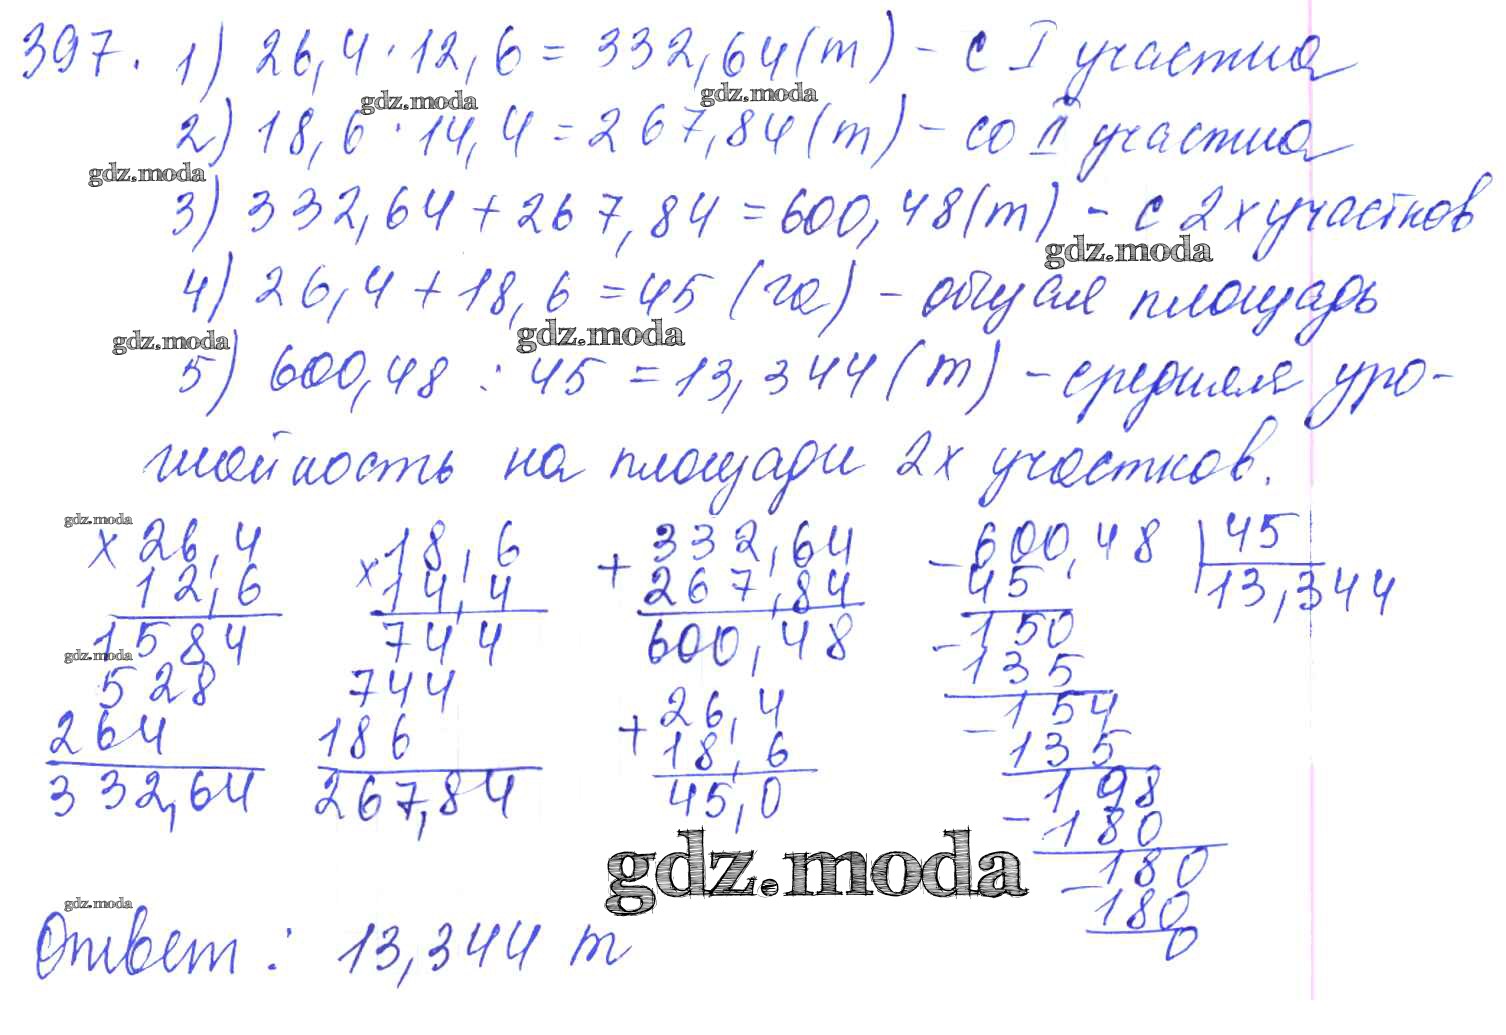 397. 1) 26,4 · 12,6 = 332,64 (т) - с I участка
gdz.moda gdz.moda
2) 18,6 · 14,4 = 267,84 (т) - со II участка
gdz.moda
3) 332,64 + 267,84 = 600,48 (т) - с 2х участков
gdz.moda
4) 26,4 + 18,6 = 45 (га) - общая площадь
gdz.moda gdz.moda
5) 600,48 : 45 = 13,344 (т) - средняя уро-
жайность на площади 2х участков.
gdz.moda
× 26,4
12,6
1584
gdz.moda
528
264
332,64
× 18,6
14,4
744
744
186
267,84
+ 332,64
267,84
600,48
+ 26,4
18,6
45,0
- 600,48 | 45
45 13,344
- 150
135
- 154
135
- 198
180
- 180
180
0
gdz.moda
gdz.moda
Ответ: 13,344 т